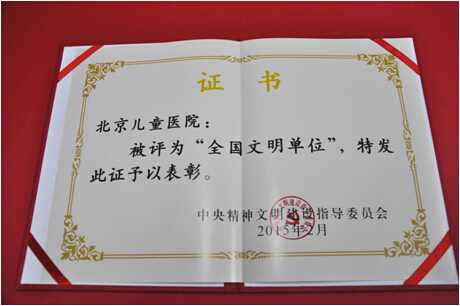 证 书
北京儿童医院：
被评为“全国文明单位”，特发
此证予以表彰。
中央精神文明建设指导委员会
2015年2月